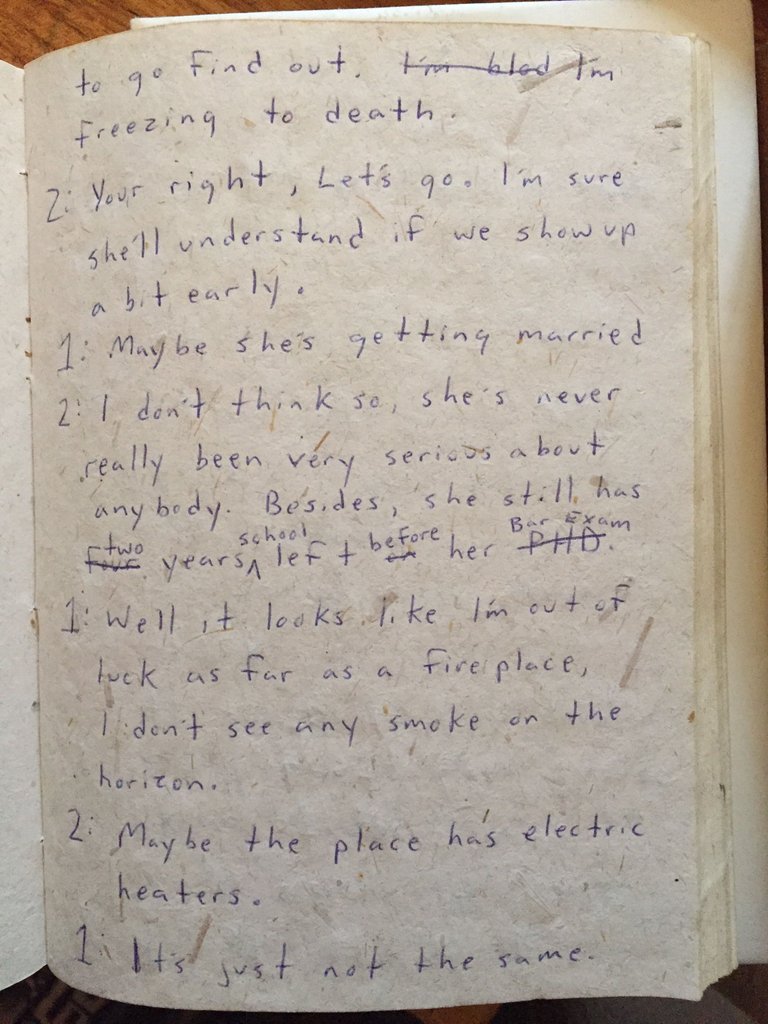 to go find out. I'm blad I'm
freezing to death.
2: Your right, Let's go. I'm sure
she'll understand if we show up
a bit early.
1: Maybe she's getting married
2: I don't think so, she's never
really been very serious about
anybody. Besides, she still has
two school before Bar Exam
four years left her PHD.
1: Well it looks like I'm out of
luck as far as a fireplace,
I don't see any smoke on the
horizon.
2: Maybe the place has electric
heaters.
1: It's just not the same.